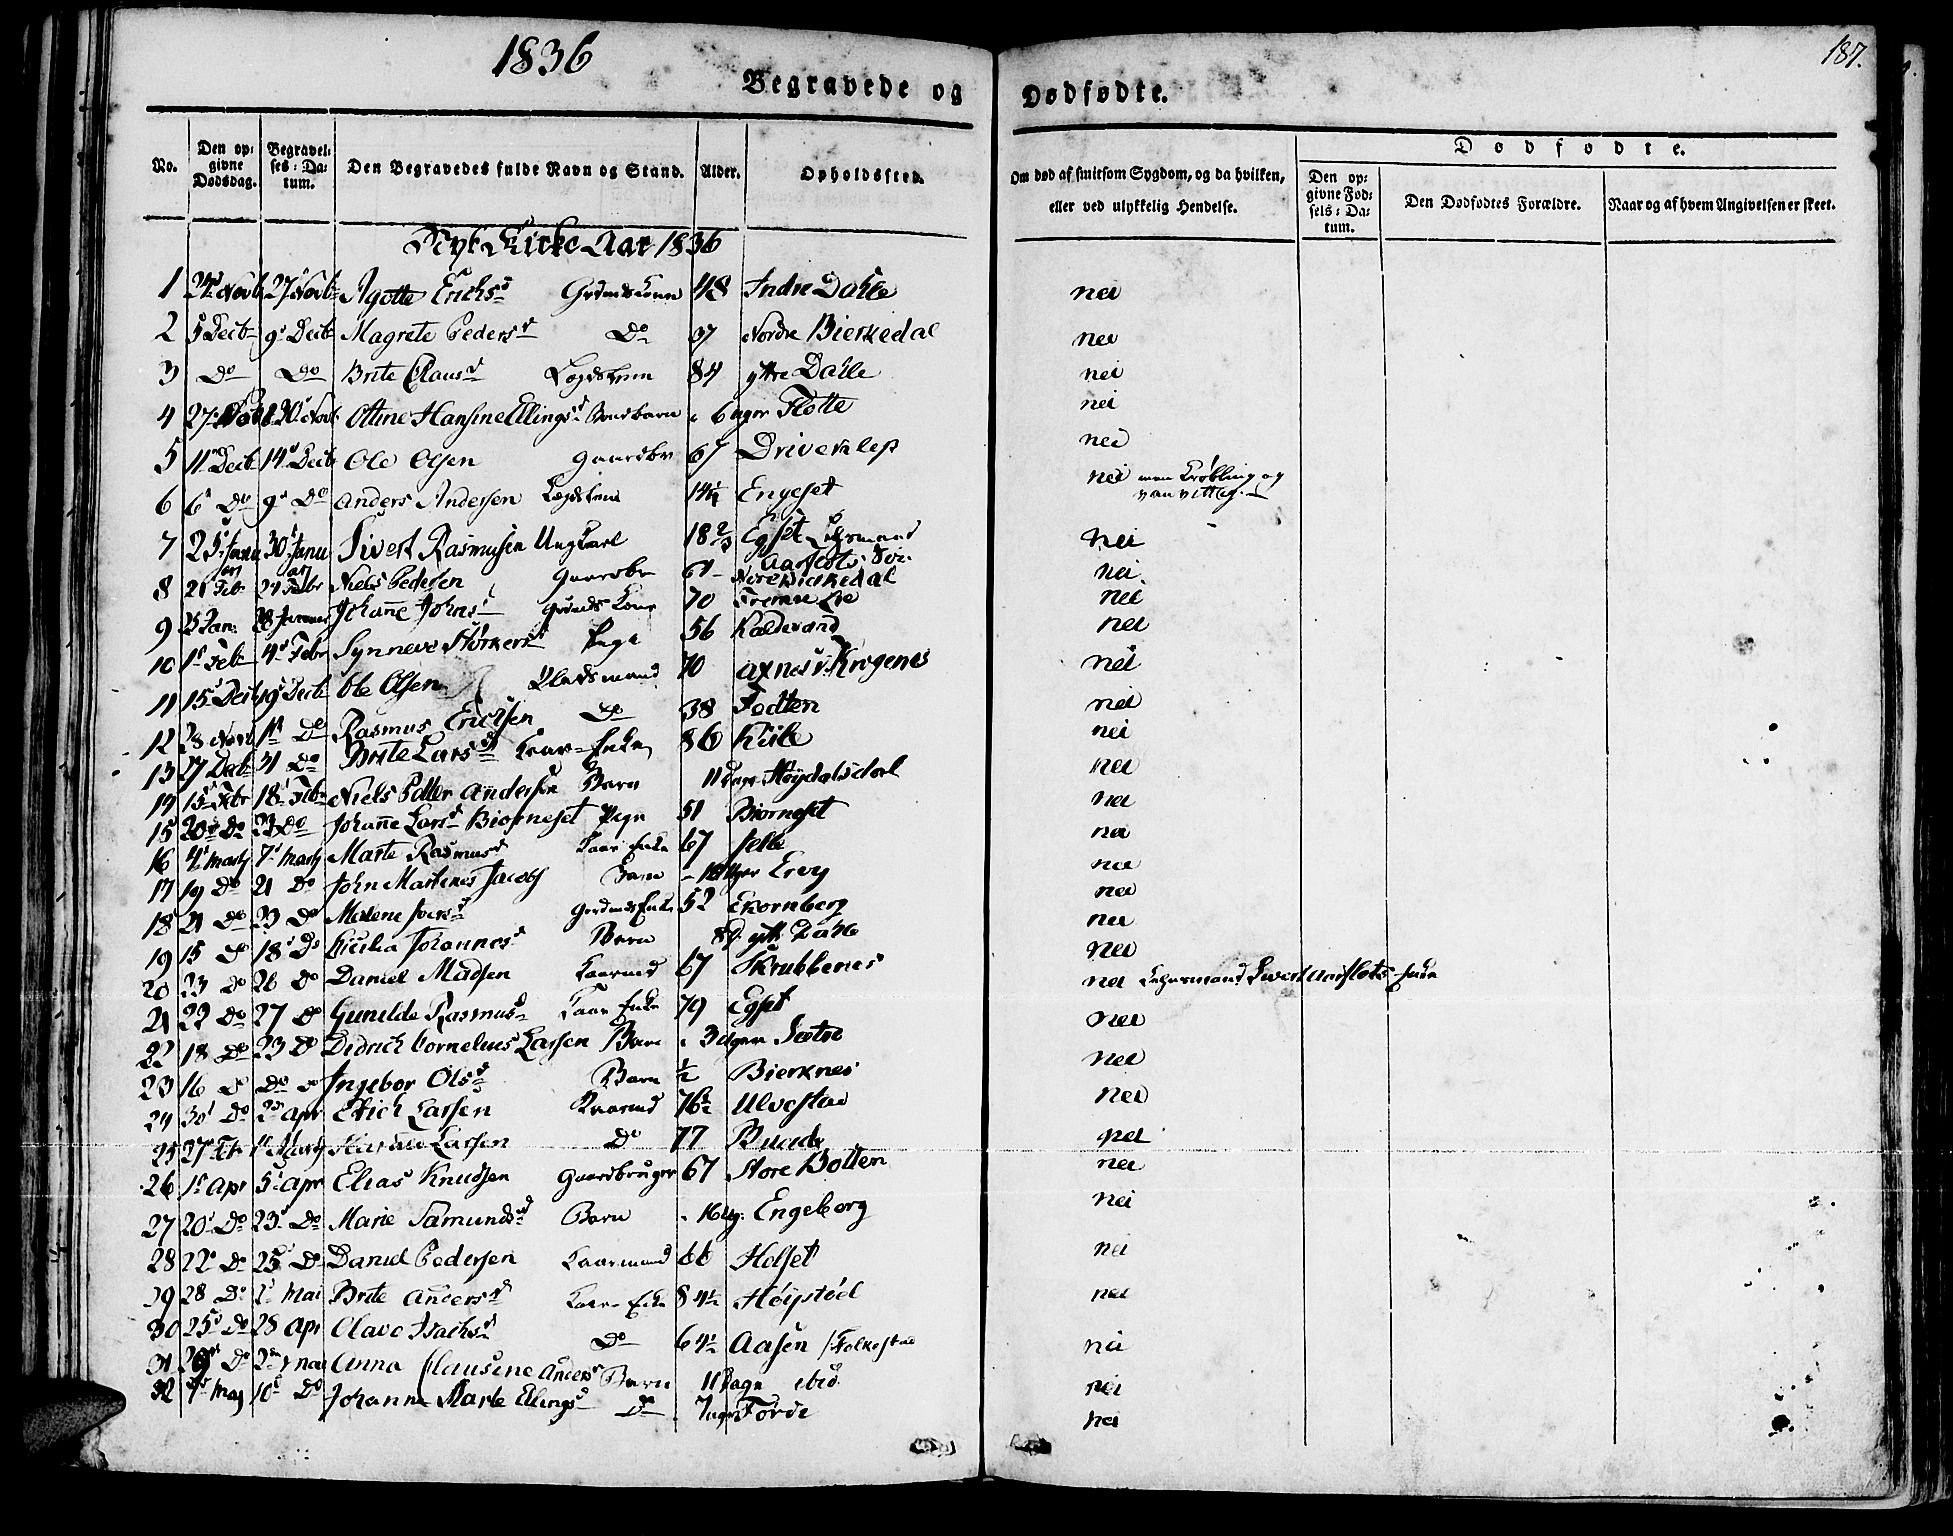 1836
187.
Begravede og Dødfødte.
No. Den opgivne Dødsdag. Begravelses-Datum. Den Begravedes fulde Navn og Stand. Alder. Opholdssted. Om død af smitsom Sygdom, og da hvilken, eller ved ulykkelig Hendelse. Dødfødte. Den opgivne Fødsels-Datum. Den Dødfødtes Forældre. Naar og af hvem Angivelsen er skeet.
Nyt Kirke Aar 1836
1 24 Novb 27 Novb Agotte Erichsd Grdmds Kone 48 Indre Dahle nei
2 5 Decb 9 Decb Magrete Pedersd Do 37 Nordre Bierkedal nei
3 Do Do Brite Clausd Legdslem 84 ytre Dahle nei
4 27 Novb 30 Novb Ottine Hansine Ellingsd Barn 6 uger Flotte nei
5 11 Decb 14 Decb Ole Olsen Gaardbr 67 Driveklep nei
6 6 Do 9 Do Anders Andersen Legdslem 14½ Engeset nei men Krøbling og vanvittig.
7 25 Janu 30 Janu Sivert Rasmusen Ungkarl 18 2/3 Egset Lehsmand Aarflots Søn nei
8 21 Feb 24 Febr Niels Pedersen Gaardbr 61 Nore Birkedal nei
9 25 Jan 28 Januar Johanne Johnsd Grdmds Kone 70 nei
10 1 Feb 4 Febr Synneve Størkersd Pige 56 Kaldvand nei
11 15 Decb 19 Decb Ole Olsen Pladsmand 70 Axnes v. Krogenes nei
12 28 Novb 1 Do Rasmus Erichsen Do 38 Fodten nei
13 27 Decb 31 Do Brite Larsd Kaar-Enke 86 Kiile nei
14 15 Febr 18 Feb Niels Petter Andersen Barn 11 Dage Høydalsdal nei
15 20 Do 23 Do Johanne Larsd Biorneset Pige 51 Biorneset nei
16 4 Martj 7 Martj Marte Rasmusd Kaar Enke 67 nei
17 19 Do 21 Do John Martines Jacobs Barn uger Ervg nei
18 21 Do 23 Do Malene Iversd Grdmds Enke 52 Ekornberg nei
19 15 Do 18 Do Cicilia Johannesd Barn 8 D. ytt Dahle nei
20 23 Do 26 Do Daniel Madsen Kaarmd 67 Skrubbenes nei
21 22 Do 27 Do Gunilde Rasmusd Kaar Enke 79 Egset nei Lehnsmand Sivert Aarflots Enke
22 18 Do 23 Do Didrich Cornelius Larsen Barn 3 uger Sætre nei
23 16 Do Do Do Ingebor Olsd Barn ½ Bierknes nei
24 30 Do 2 Apr Erich Larsen Kaarmd 76½ Ulvestad nei
25 27 Feb 1 Martj Larsen Do 77 nei
26 1 Apr 5 Apr Elias Knudsen Gaardbruger 67 Store Botten nei
27 20 Do 23 Do Marie Samundsd Barn 16 ug. Engeborg nei
28 22 Do 25 Do Daniel Pedersen Kaarmand 66 Helset nei
29 28 Do 1 Mai Brite Andersd Kaar Enke 84½ Høystød nei
30 25 Do 28 Apr Olave Isachsd Do 64½ Aasen /Folkestad nei
31 29 Do 2 Mai Anna Clausine Andersd Barn 11 Dage ibid. nei
32 7 Maj 10 Do Johanna Marte Ellingsd Do 7 uger Førde nei